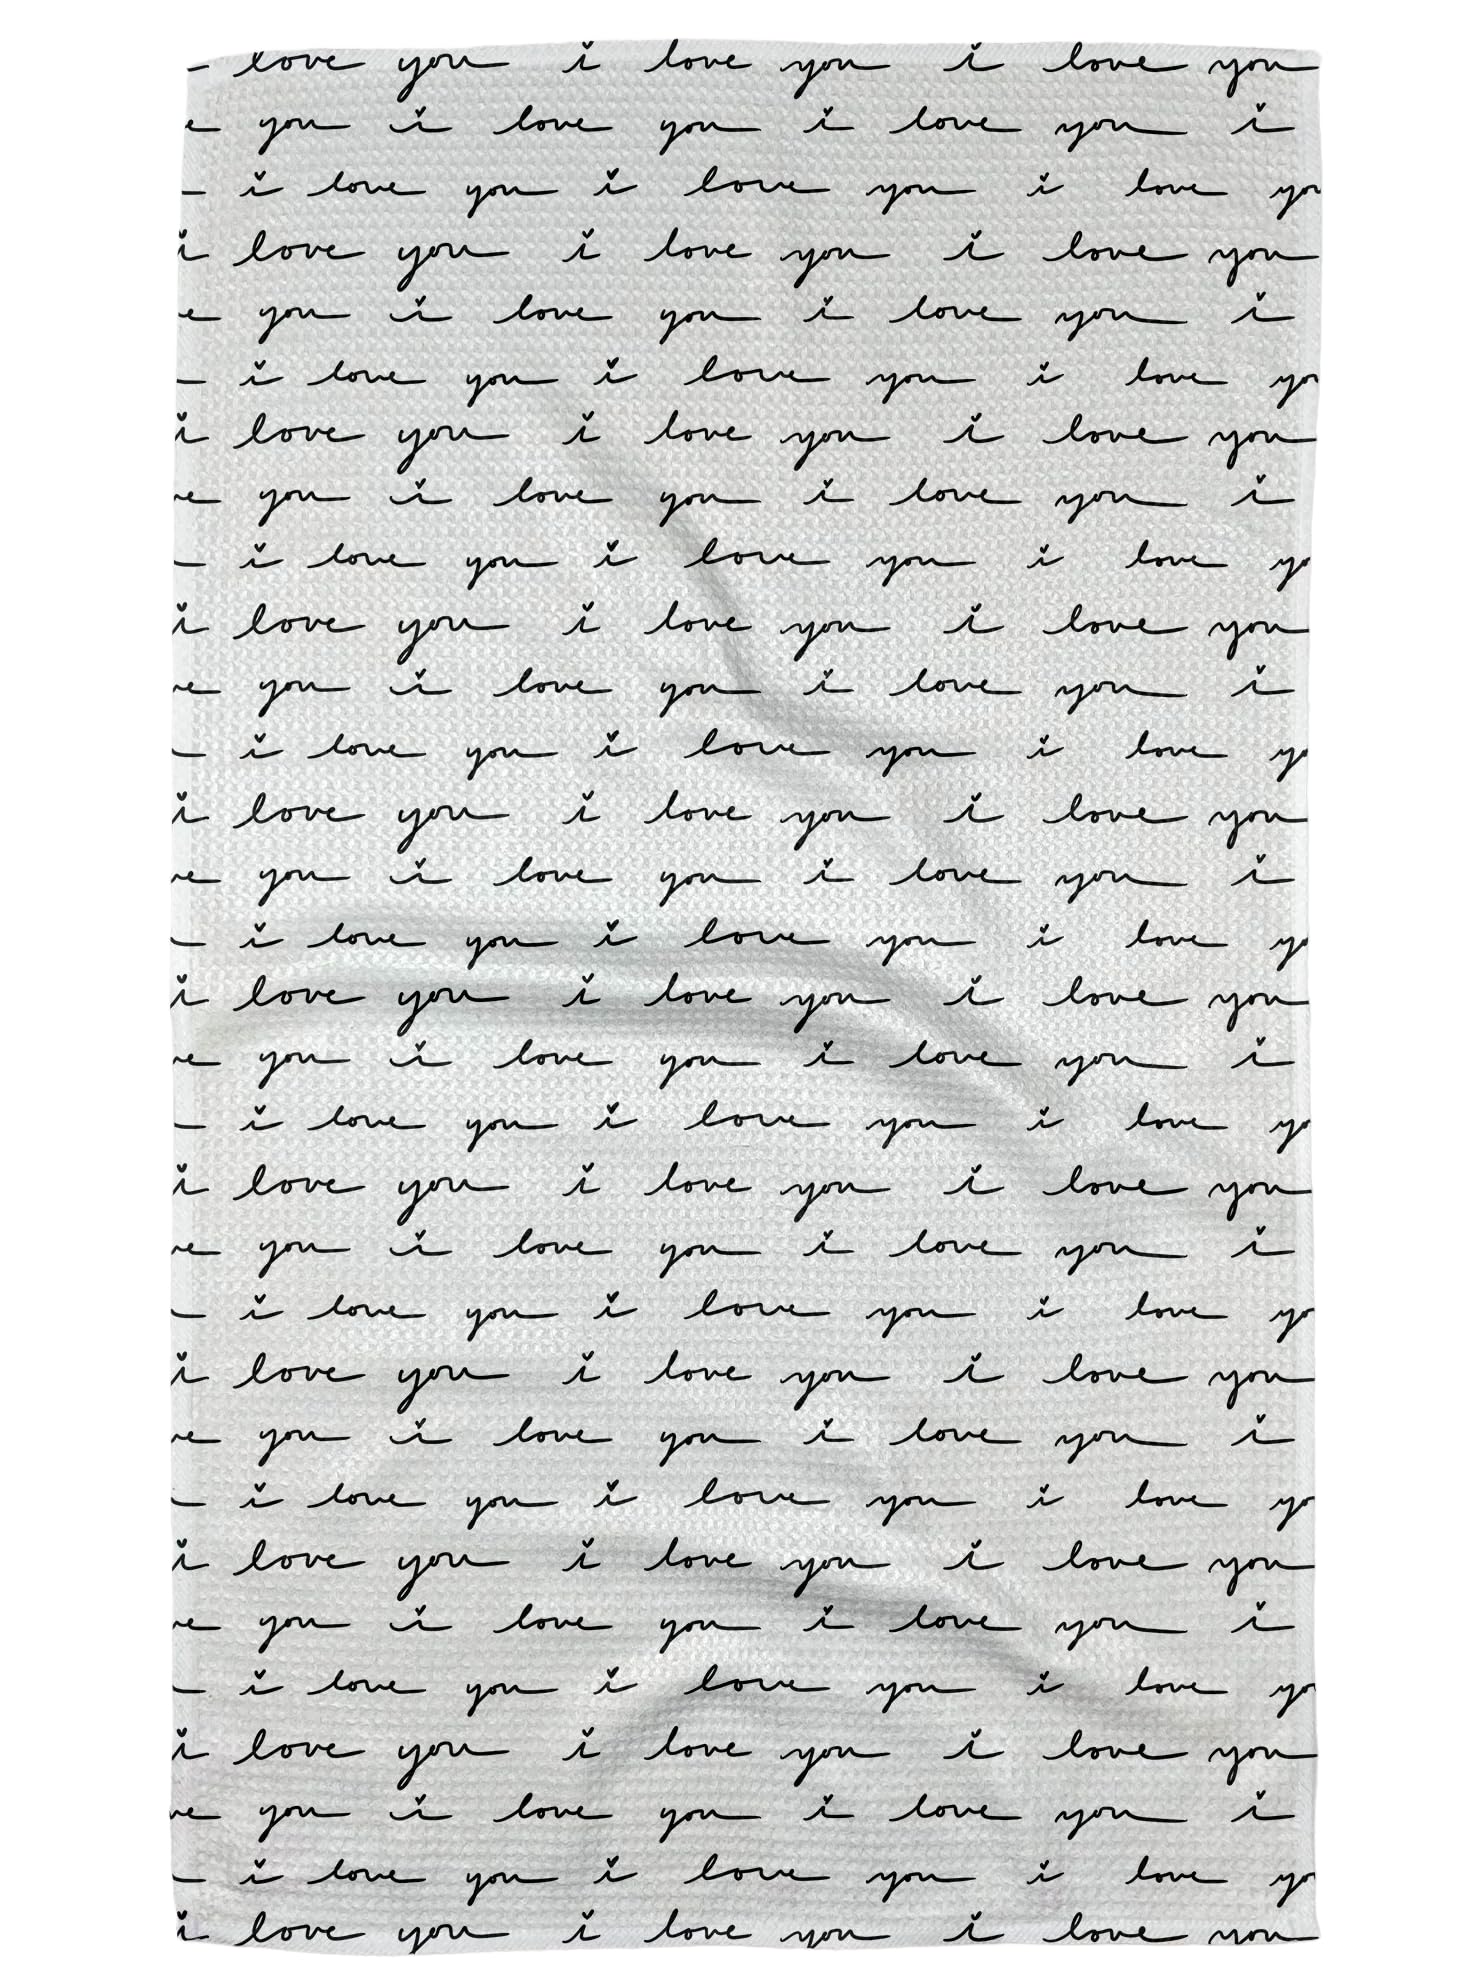 love you i love you i love you
e you i love you i love you i
i love you i love you i love yo
i love you i love you i love you
e you i love you i love you i
i love you i love you i love yo
i love you i love you i love you
ve you i love you i love you i
i love you i love you i love yo
i love you i love you i love you
ve you i love you i love you i
i love you i love you i love yo
i love you i love you i love you
ve you i love you i love you i
i love you i love you i love yo
i love you i love you i love you
ve you i love you i love you i
i love you i love you i love yo
i love you i love you i love you
ve you i love you i love you i
i love you i love you i love yo
i love you i love you i love you
ve you i love you i love you i
i love you i love you i love yo
i love you i love you i love you
ve you i love you i love you i
i love you i love you i love yo
i love you i love you i love you
ve you i love you i love you i
i love you i love you i love yo
i love you i love you i love you